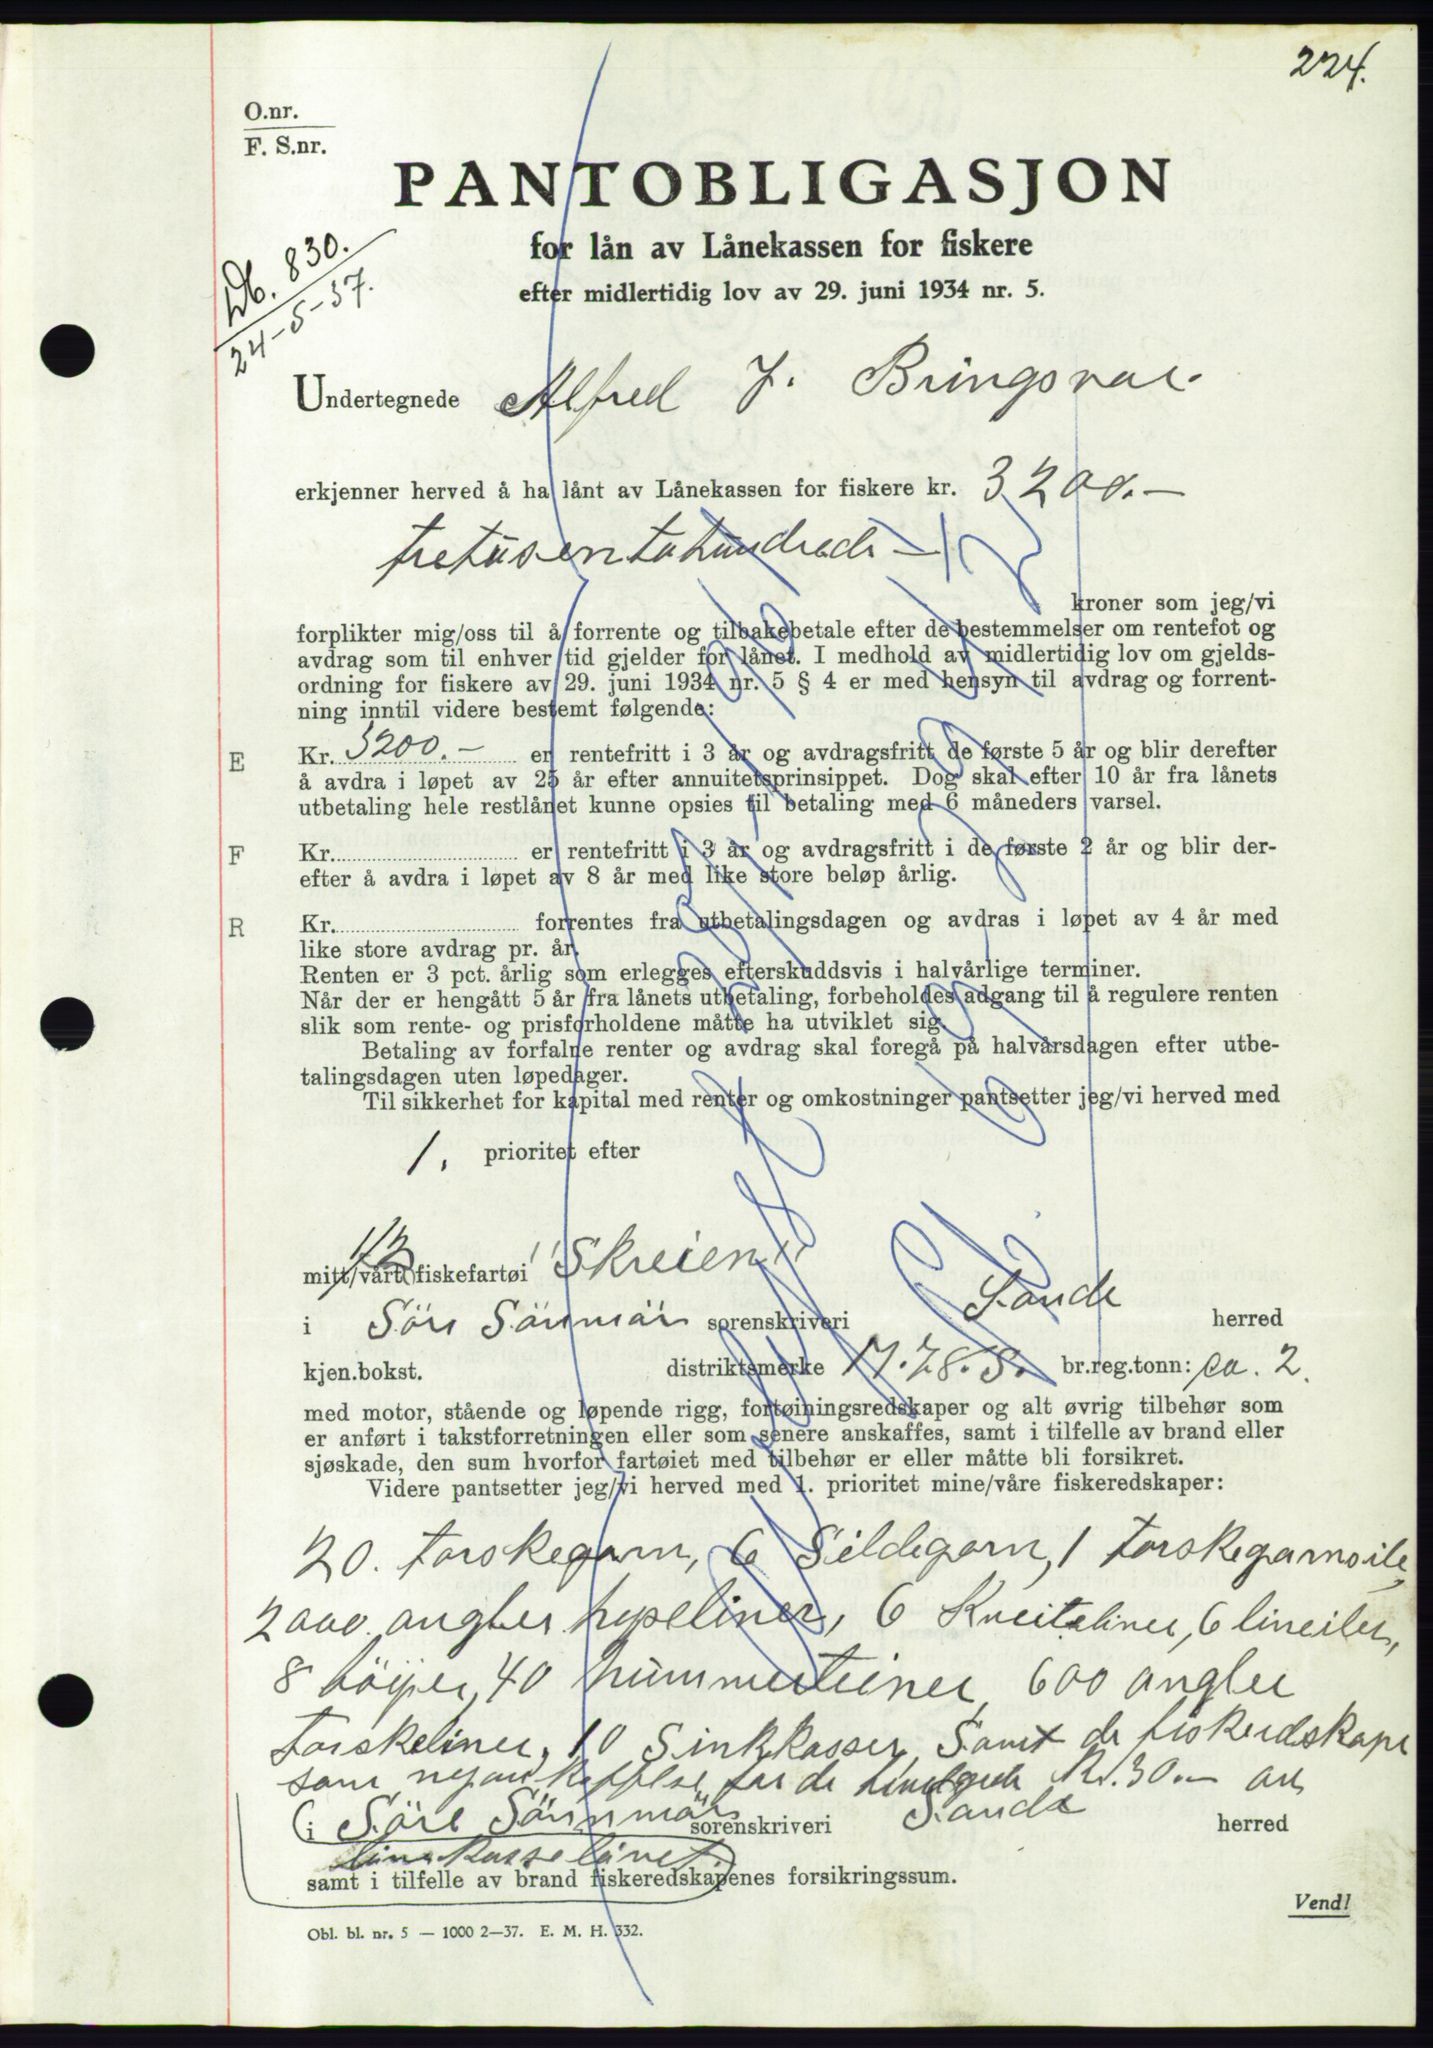 224.
O.nr.
F. S.nr.
PANTOBLIGASJON
for lån av Lånekassen for fiskere
efter midlertidig lov av 29. juni 1934 nr. 5.
Db. 830.
24-5-37.
Undertegnede Alfred J. Bringsvor
erkjenner herved å ha lånt av Lånekassen for fiskere kr. 3200.—
tretusentohundrede —
kroner som jeg/vi
forplikter mig/oss til å forrente og tilbakebetale efter de bestemmelser om rentefot og
avdrag som til enhver tid gjelder for lånet. I medhold av midlertidig lov om gjelds-
ordning for fiskere av 29. juni 1934 nr. 5 § 4 er med hensyn til avdrag og forrent-
ning inntil videre bestemt følgende:
E Kr. 3200.— er rentefritt i 3 år og avdragsfritt de første 5 år og blir derefter
å avdra i løpet av 25 år efter annuitetsprinsippet. Dog skal efter 10 år fra lånets
utbetaling hele restlånet kunne opsies til betaling med 6 måneders varsel.
F Kr. er rentefritt i 3 år og avdragsfritt i de første 2 år og blir der-
efter å avdra i løpet av 8 år med like store beløp årlig.
R Kr. forrentes fra utbetalingsdagen og avdras i løpet av 4 år med
like store avdrag pr. år.
Renten er 3 pct. årlig som erlegges efterskuddsvis i halvårlige terminer.
Når der er hengått 5 år fra lånets utbetaling, forbeholdes adgang til å regulere renten
slik som rente- og prisforholdene måtte ha utviklet sig.
Betaling av forfalne renter og avdrag skal foregå på halvårsdagen efter utbe-
talingsdagen uten løpedager.
Til sikkerhet for kapital med renter og omkostninger pantsetter jeg/vi herved med
1. prioritet efter
1/2
mitt/vårt fiskefartøi "Skreien"
i Söre Sönmör sorenskriveri Sande herred
kjen.bokst. distriktsmerke M.28.S. br.reg.tonn: ca. 2.
med motor, stående og løpende rigg, fortøiningsredskaper og alt øvrig tilbehør som
er anført i takstforretningen eller som senere anskaffes, samt i tilfelle av brand eller
sjøskade, den sum hvorfor fartøiet med tilbehør er eller måtte bli forsikret.
Videre pantsetter jeg/vi herved med 1. prioritet mine/våre fiskeredskaper:
20. torskegarn, 6 Sildegarn, 1 torskegarnsile,
2000 angler hyseliner, 6 Kveiteliner, 6 lineiler,
8 böiyer, 40 hummerteiner, 600 angler
torskeliner, 10 Sinkkasser, Samt de fiskeredskaper
som nyanskaffelse for de Kr. 30.— av
i Söre Sönnmör sorenskriveri Sande herred
lånekasselånet.
samt i tilfelle av brand fiskeredskapenes forsikringssum.
Vend!
Obl. bl. nr. 5 — 1000 2—37. E. M. H. 332.